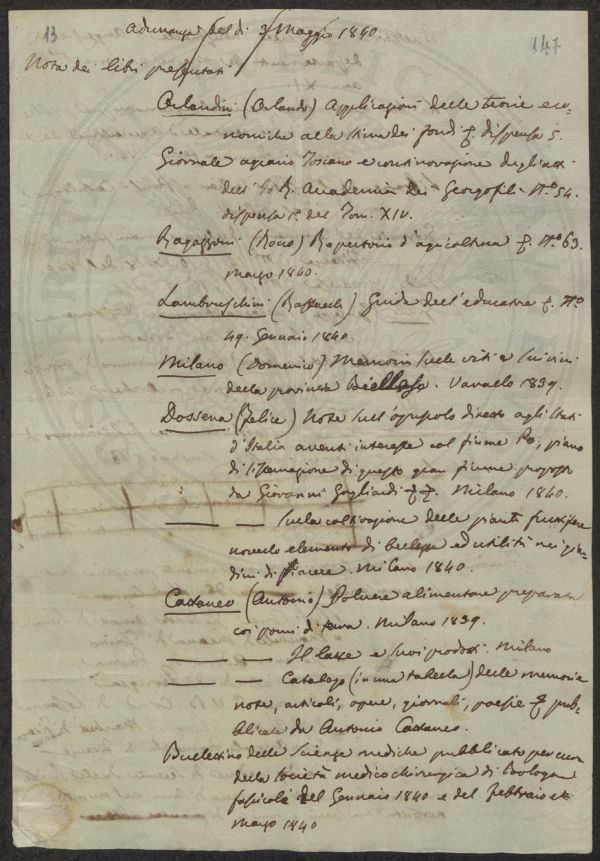 13
Adunanza del dì 3 Maggio 1840.
147
Nota dei libri presentati
Orlandini (Orlando) Applicazioni delle teorie eco-
nomiche alla stima dei fondi &. dispensa 5.
Giornale agrario Toscano e continovazione degli atti
dell' I. R. Accademia dei Georgofili N.° 54.
dispensa 1.ª del Tom. XIV.
Ragazzoni (Rocco) Repertorio d'agricoltura &. N.° 63.
Marzo 1840.
Lambruschini (Raffaele) Guida dell'educatore &. N.°
49. Gennaio 1840.
Milano (Domenico) Memoria sulle viti e sui vini
della provincia Biellese. Varallo 1839.
Dossena (Felice) Note sull' opuscolo diretto agli Stati
d'Italia aventi interesse col fiume Po, piano
di sistemazione di questo gran fiume proposto
da Giovanni Gagliardi &. &. Milano 1840.
——— — Sulla coltivazione delle piante fruttifere
novello elemento di bellezza ed utilità nei giar-
dini di piacere. Milano 1840.
Cattaneo (Antonio) Polvere alimentare preparata
coi pomi di terra. Milano 1839.
——— — Il latte e suoi prodotti. Milano
——— — Catalogo (in una tabella) delle memorie
note, articoli, opere, giornali, poesie & pub-
blicate da Antonio Cattaneo.
Bullettino delle Scienze mediche pubblicato per cura
della Società medico chirurgica di Bologna
fascicolo del Gennaio 1840 e del Febbraio e
Marzo 1840